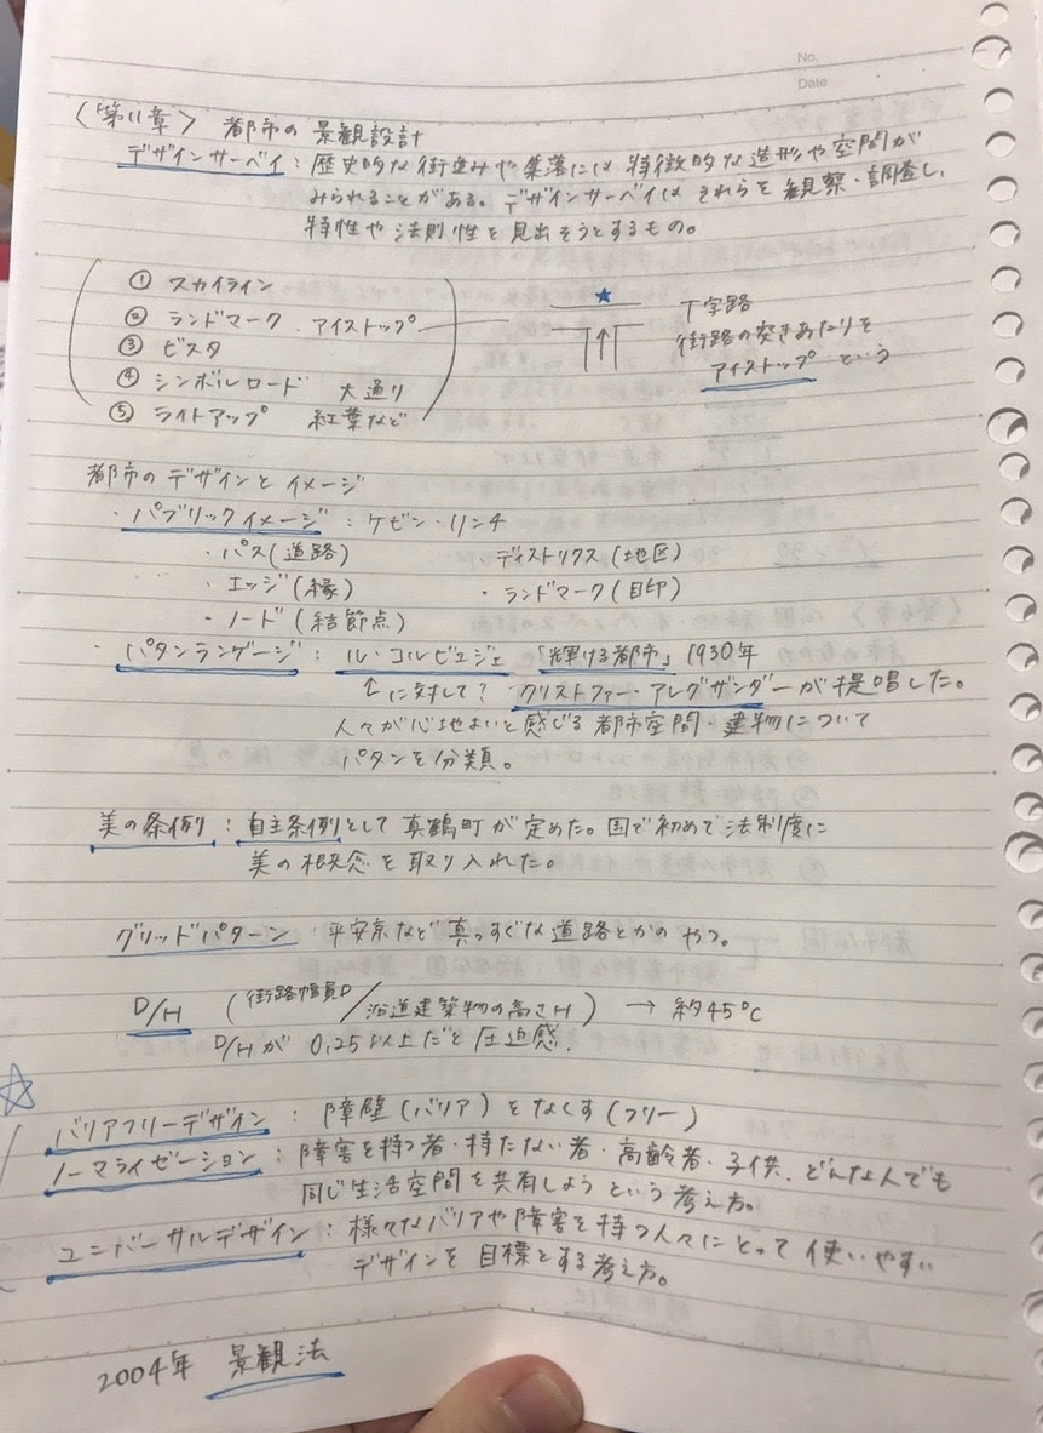 No.
Date
〈第11章〉 都市の景観設計
デザインサーベイ：歴史的な街並みや集落には特徴的な造形や空間が
みられることがある。デザインサーベイはそれらを観察・調査し、
特性や法則性を見出そうとするもの。
① スカイライン
② ランドマーク．アイストップ
③ ビスタ
④ シンボルロード 大通り
⑤ ライトアップ 紅葉など
★
↑
丁字路
街路の突きあたりを
アイストップ という
都市のデザインとイメージ
・パブリックイメージ：ケビン・リンチ
・パス(道路) ・ディストリクス(地区)
・エッジ(縁) ・ランドマーク(目印)
・ノード(結節点)
・パタンランゲージ：ル・コルビュジェ 「輝ける都市」1930年
↑に対して？ クリストファー・アレグザンダーが提唱した。
人々が心地よいと感じる都市空間・建物について
パタンを分類。
美の条例：自主条例として真鶴町が定めた。国で初めて法制度に
美の概念を取り入れた。
グリッドパターン 平安京など真っすぐな道路とかのやつ。
D/H (街路幅員D/沿道建築物の高さH) → 約45℃
D/Hが 0.25以上だと圧迫感．
☆
バリアフリーデザイン：障壁(バリア)をなくす(フリー)
ノーマライゼーション：障害を持つ者・持たない者・高齢者・子供、どんな人でも
同じ生活空間を共有しようという考え方。
ユニバーサルデザイン：様々なバリアや障害を持つ人々にとって使いやすい
デザインを目標とする考え方。
2004年 景観法